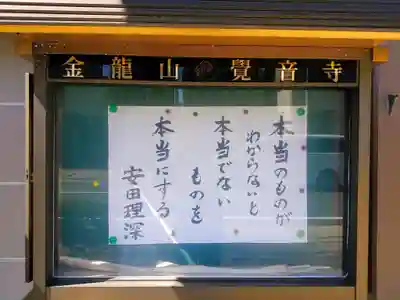 金龍山 覺音寺
本当のものが
わからないと
本当でない
ものを
本当にする
安田理深